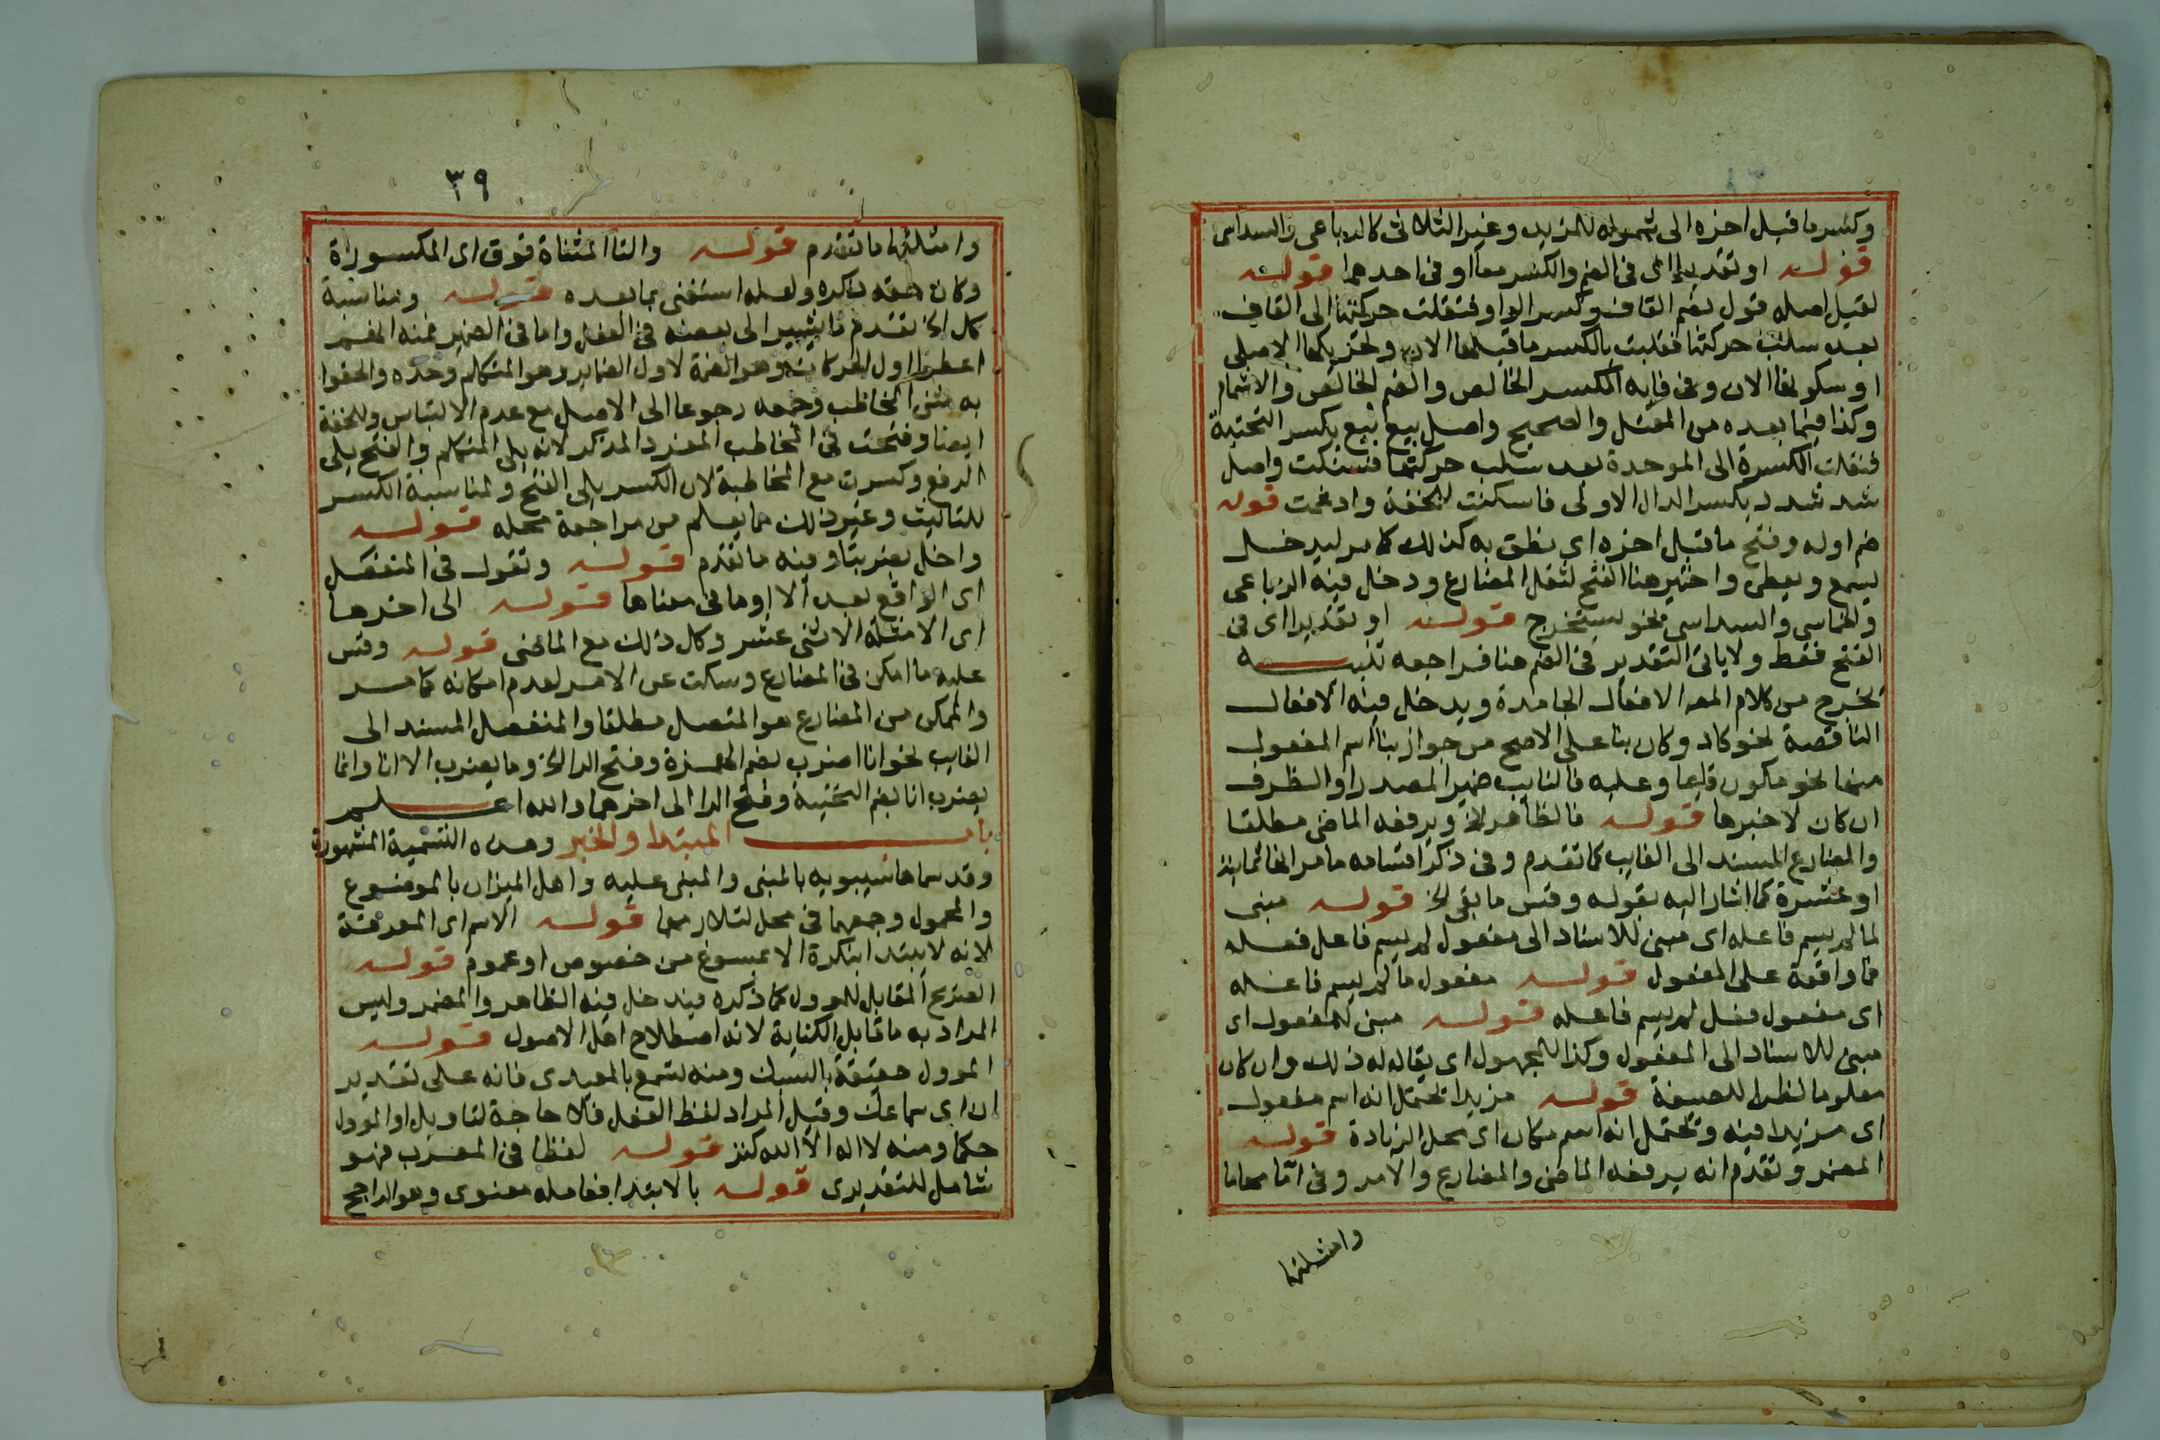 وكسر ما قبل اخره الى شموله للمزيد وغير الثلاثى كالرباعى والسداسى
قوله او تقديرا اى فى الضم والكسر معا او فى احدهما قوله
لقيل اصله قول بضم القاف وكسر الواو فنقلت حركتها الى القاف
بعد سلب حركتها فقلبت بالكسر ما قبلها الان ولتحريكها الاصلى
او سكونها الان وفى فايه الكسر الخالص والضم الخالص والاشمام
وكذا فيما بعده من المعتل والصحيح واصل بيع بيع بكسر التحتية
فنقلت الكسرة الى الموحدة بعد سلب حركتها فسكنت واصل
شد شدد بكسر الدال الاولى فاسكنت للخفة وادغمت قوله
ضم اوله وفتح ما قبل اخره اى نطق به كذلك كما مر ليدخل
يسمع ويعطى واختير هنا الفتح لثقل المضارع ودخل فيه الرباعى
والخماسى والسداسى نحو يستخرج قوله او تقديرا اى فى
الفتح فقط ولا ياتى التقدير فى الضم هنا فراجعه تنبيه
تخرج من كلام المص الافعال الجامدة ويدخل فيه الافعال
الناقصة نحو كاد وكان بنا على الاصح من جواز بنا اسم المفعول
منها نحو مكون قايما وعليه فالنايب ضمير المصدر او الظرف
ان كان لا خبرها قوله فالظاهر الخ ويرفعه الماضى مطلقا
والمضارع المسند الى الغايب كما تقدم وفى ذكر اقسامه ما مر انها ثمانية
او عشرة كما اشار اليه بقوله وقس ما بقى الخ قوله مبنى
لما لم يسم فاعله اى مبنى للاسناد الى مفعول لم يسم فاعل فعله
فما واقعة على المفعول قوله مفعول ما لم يسم فاعله
اى مفعول فعل لم يسم فاعله قوله مبنى للمفعول اى
مبنى للاسناد الى المفعول وكذا للمجهول اى يقال له ذلك وان كان
معلوما نظرا للصيغة قوله مزيدا تحتمل انه اسم مفعول
اى مزيدا فيه وتحتمل انه اسم مكان اى محل الزيادة قوله
المضمر وتقدم انه يرفعه الماضى والمضارع والامر وفى اقسامها ما
وامثلتها
٣٩
وامثلتها ما تقدم قوله والتا المثناة فوق اى المكسورة
وكان حقه ذكره ولعله استغنى بما بعده قوله ومناسبة
كل الخ تقدم ما يشير الى بعضه فى الفعل واما فى الضمير فمنه الضم
اعطوا اول الحركات وهو الضمة لاول الضماير وهو المتكلم وحده والحقوا
به مثنى المخاطب وجمعه رجوعا الى الاصل مع عدم الالتباس وللخفة
ايضا وفتحت فى المخاطب المفرد المذكر لانه يلى المتكلم والفتح يلى
الرفع وكسرت مع المخاطبة لان الكسر يلى الفتح ولمناسبة الكسر
للتانيث وغير ذلك مما يعلم من مراجعة محله قوله
واخل بضربتا وفيه ما تقدم قوله وتقول فى المنفصل
اى الواقع بعد الا او ما فى معناها قوله الى اخرها
اى الامثلة الاثنى عشر وكل ذلك مع الماضى قوله وقس
عليه ما امكن فى المضارع وسكت عن الامر لعدم امكانه كما مر
والممكن من المضارع هو المتصل مطلقا والمنفصل المسند الى
الغايب نحو انا اضرب بضم الهمزة وفتح الرا الخ وما يضرب الا انا وانما
يضرب انا بضم التحتية وفتح الرا الى اخرهما والله اعلم
باب المبتدا والخبر وهذه التسمية المشهورة
وقد سماها سيبويه بالمبنى والمبنى عليه واهل الميزان بالموضوع
والمحمول وجمعهما فى محل لتلازمهما قوله الاسم اى المعرفة
لانه لا يبتدا بنكرة الا بمسوغ من خصوص او عموم قوله
الصريح المقابل للموول كما ذكره فيدخل فيه الظاهر والمضمر وليس
المراد به ما قابل الكناية لانه اصطلاح اهل الاصول قوله
الموول حقيقة بالسبك ومنه تسمع بالمعيدى فانه على تقدير
ان اى سماعك وقيل المراد لفظ الفعل فلا حاجة لتاويل او الموول
حكما ومنه لا اله الا الله كنز قوله لفظا فى المعرب فهو
شامل للتقديرى قوله بالابتدا فعامله معنوى وهو الراجح